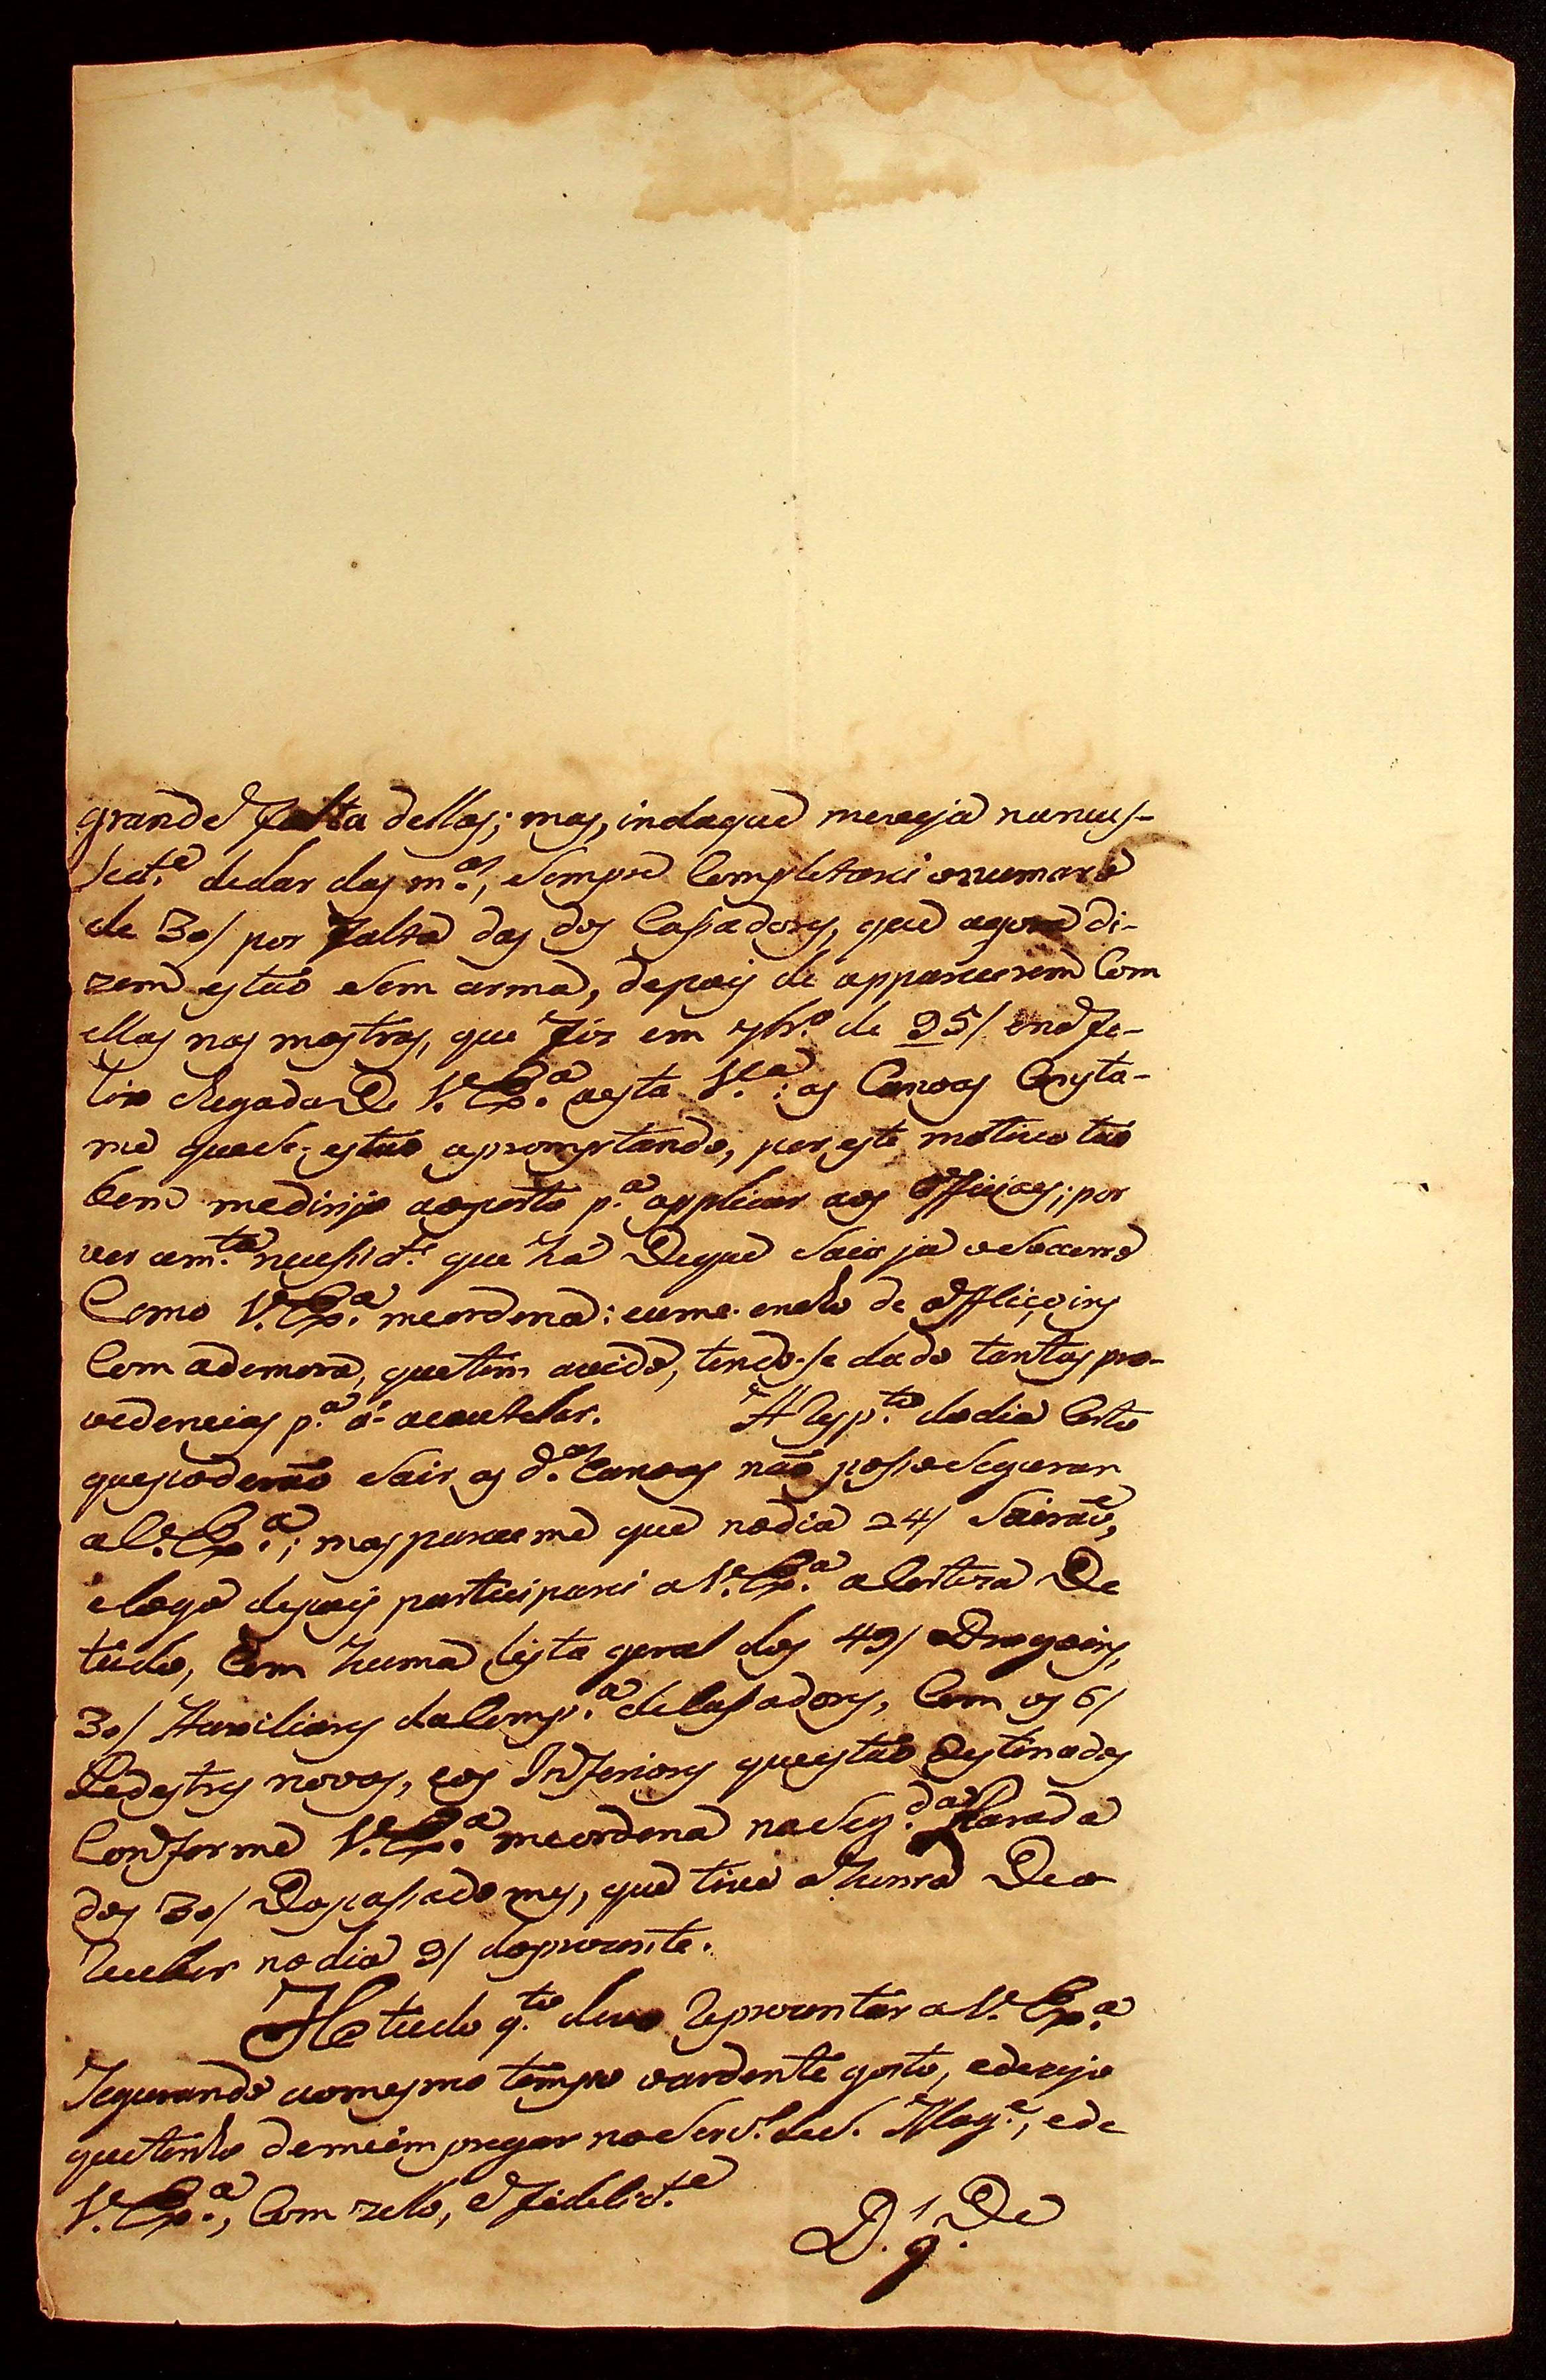 grande falta dellas; mas, inda que me veja nunces-
sid.e de dar das m.as, sempre Completarei o numaro
de 30/ por falta das dos Cassadores, que agora di-
zem estaõ sem arma, depois de apparecerem Com
ellas nas mostras, que fis em 7br.o de 95/ en á fe-
liz chegada De V. Ex.a aesta V.a: as Canoas Consta-
me que se estaõ apromptando, por este motivo taõ
bem me dirijo ao porto p.a applicar aos Officiaes; por
ver am.ta necessid.e que há De que saia já o socorro
Como V. Ex.a me ordena: eu me encho de afflicçoins
Com ademora, que tem avido, tendo-se dado tantas pro-
vedencias p.a á acautelar. A resp.to do dia Certo
que poderaõ sair as d.as Canoas naõ posso segurar
a V. Ex.a; mas parece me que no dia 24/ sairaõ,
e logo depois participarei a V. Ex.a a Certeza De
tudo, Com huma Lista geral dos 49/ Dragoins,
30/ Auxiliares da Comp.a de Cassadores, Com os 6/
Pedestres novos, e os Inferiores que estaõ Destinados
Conforme V. Ex.a me ordena na seg.da Parada
dos 30/ Do passado mes, que tive a Honra De a
receber no dia 9/ do prezente.
He tudo q.to devo reprezentar a V. Ex.a
segurando ao mesmo tempo o ardente gosto, e dezejo
que tenho de me impregar no serv.o de S. Mag.e, e de
V. Ex.a, Com zelo, e fidelid.e
D.s g.De